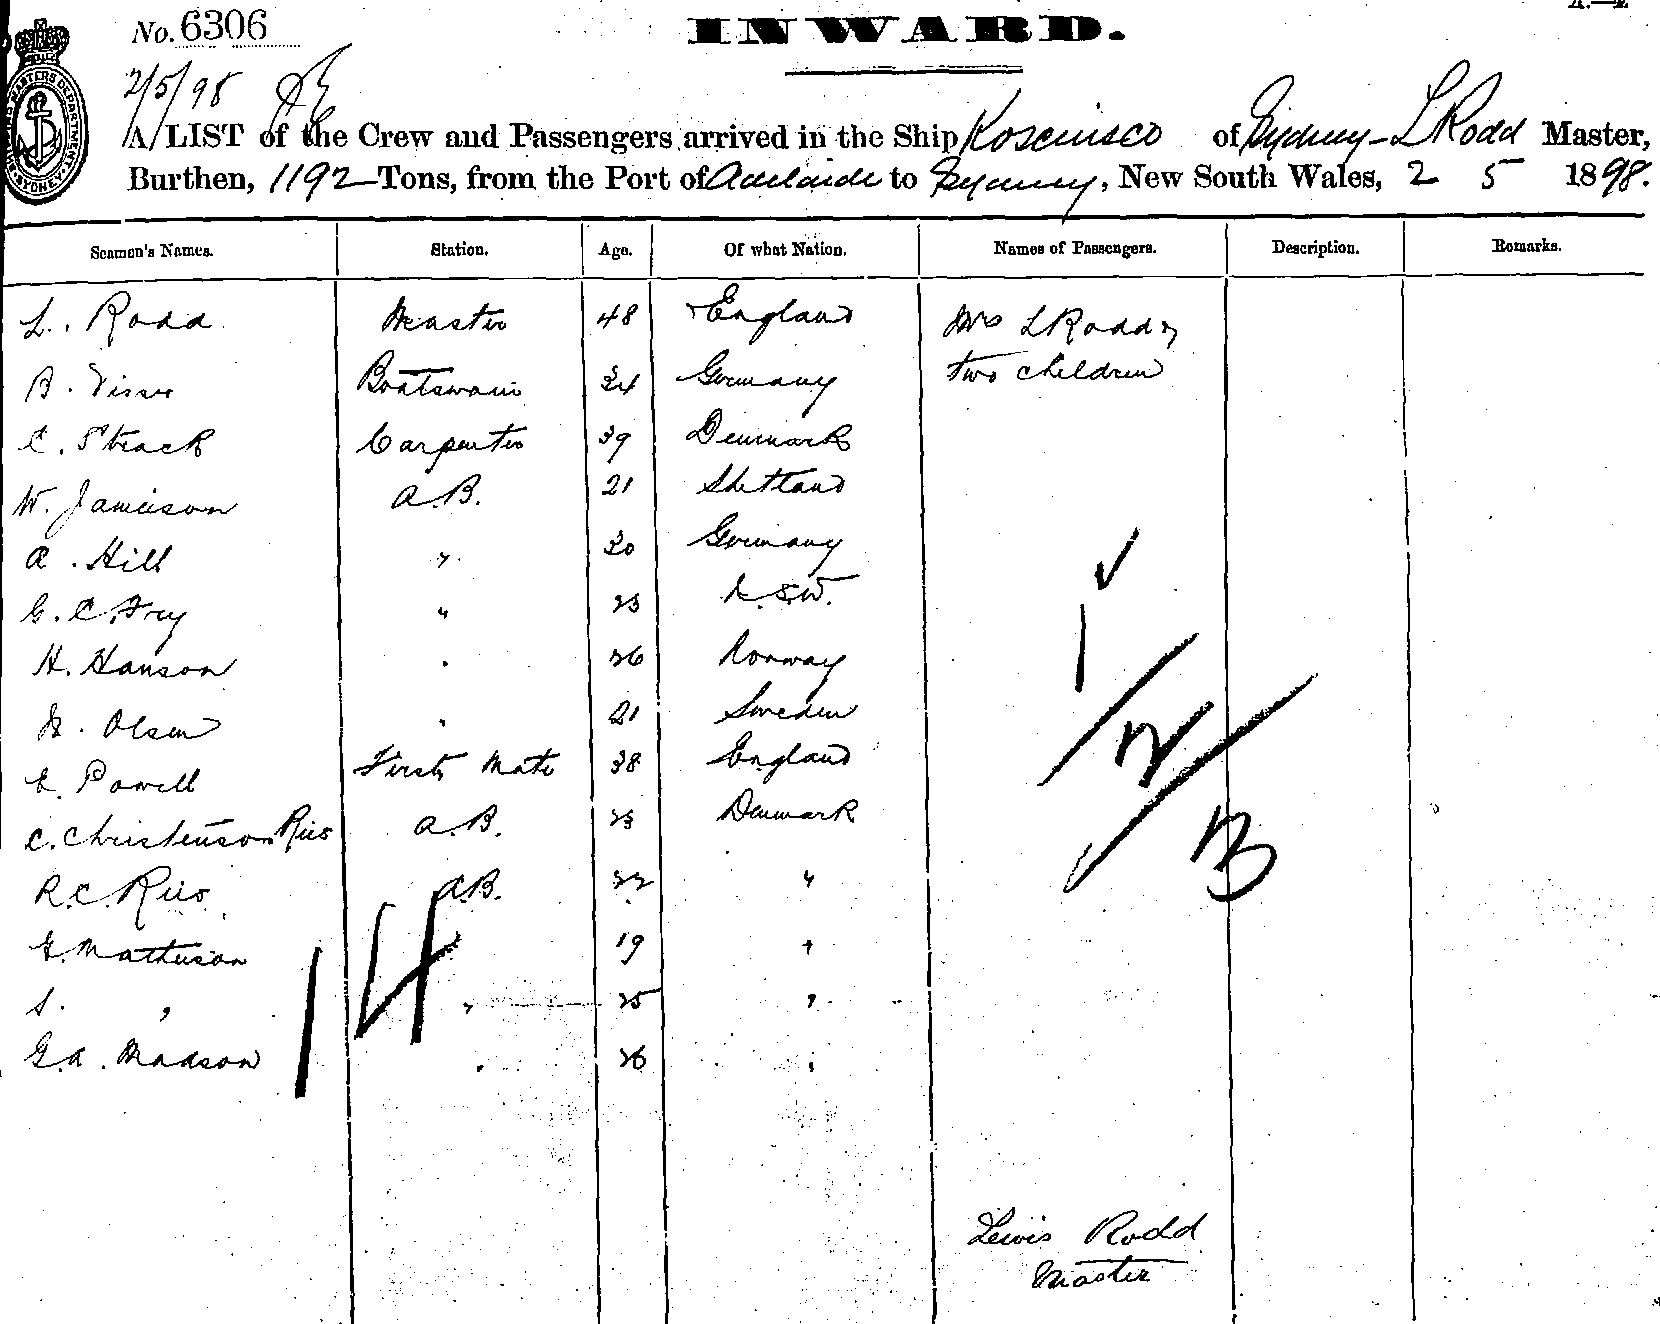 No. 6306
INWARD.
2/5/98
A LIST of the Crew and Passengers arrived in the Ship Kosciusco of Sydney - L Rodd Master,
Burthen, 1192 Tons, from the Port of Adelaide to Sydney, New South Wales, 2 5 1898.
Seamen's Names. Station. Age. Of what Nation. Names of Passengers. Description. Remarks.
L. Rodd Master 48 England Mrs L Rodd &
B. Boatswain 34 Germany two children
C. Strack Carpenter 39 Denmark
W. Jamieson A.B. 21 Shetland
A. Hill " 30 Germany
G. C. Fry " 23 N.S.W.
H. Hanson " 26 Norway
Olsen " 21 Sweden
E. Powell First Mate 38 England
C. Christenson Riis A.B. 23 Denmark
R.C. Riis A.B. 22 "
Mathieson " 19 "
S. " " 25 "
G.A. Madson " 26 "
14
1
2
3
Lewis Rodd
Master